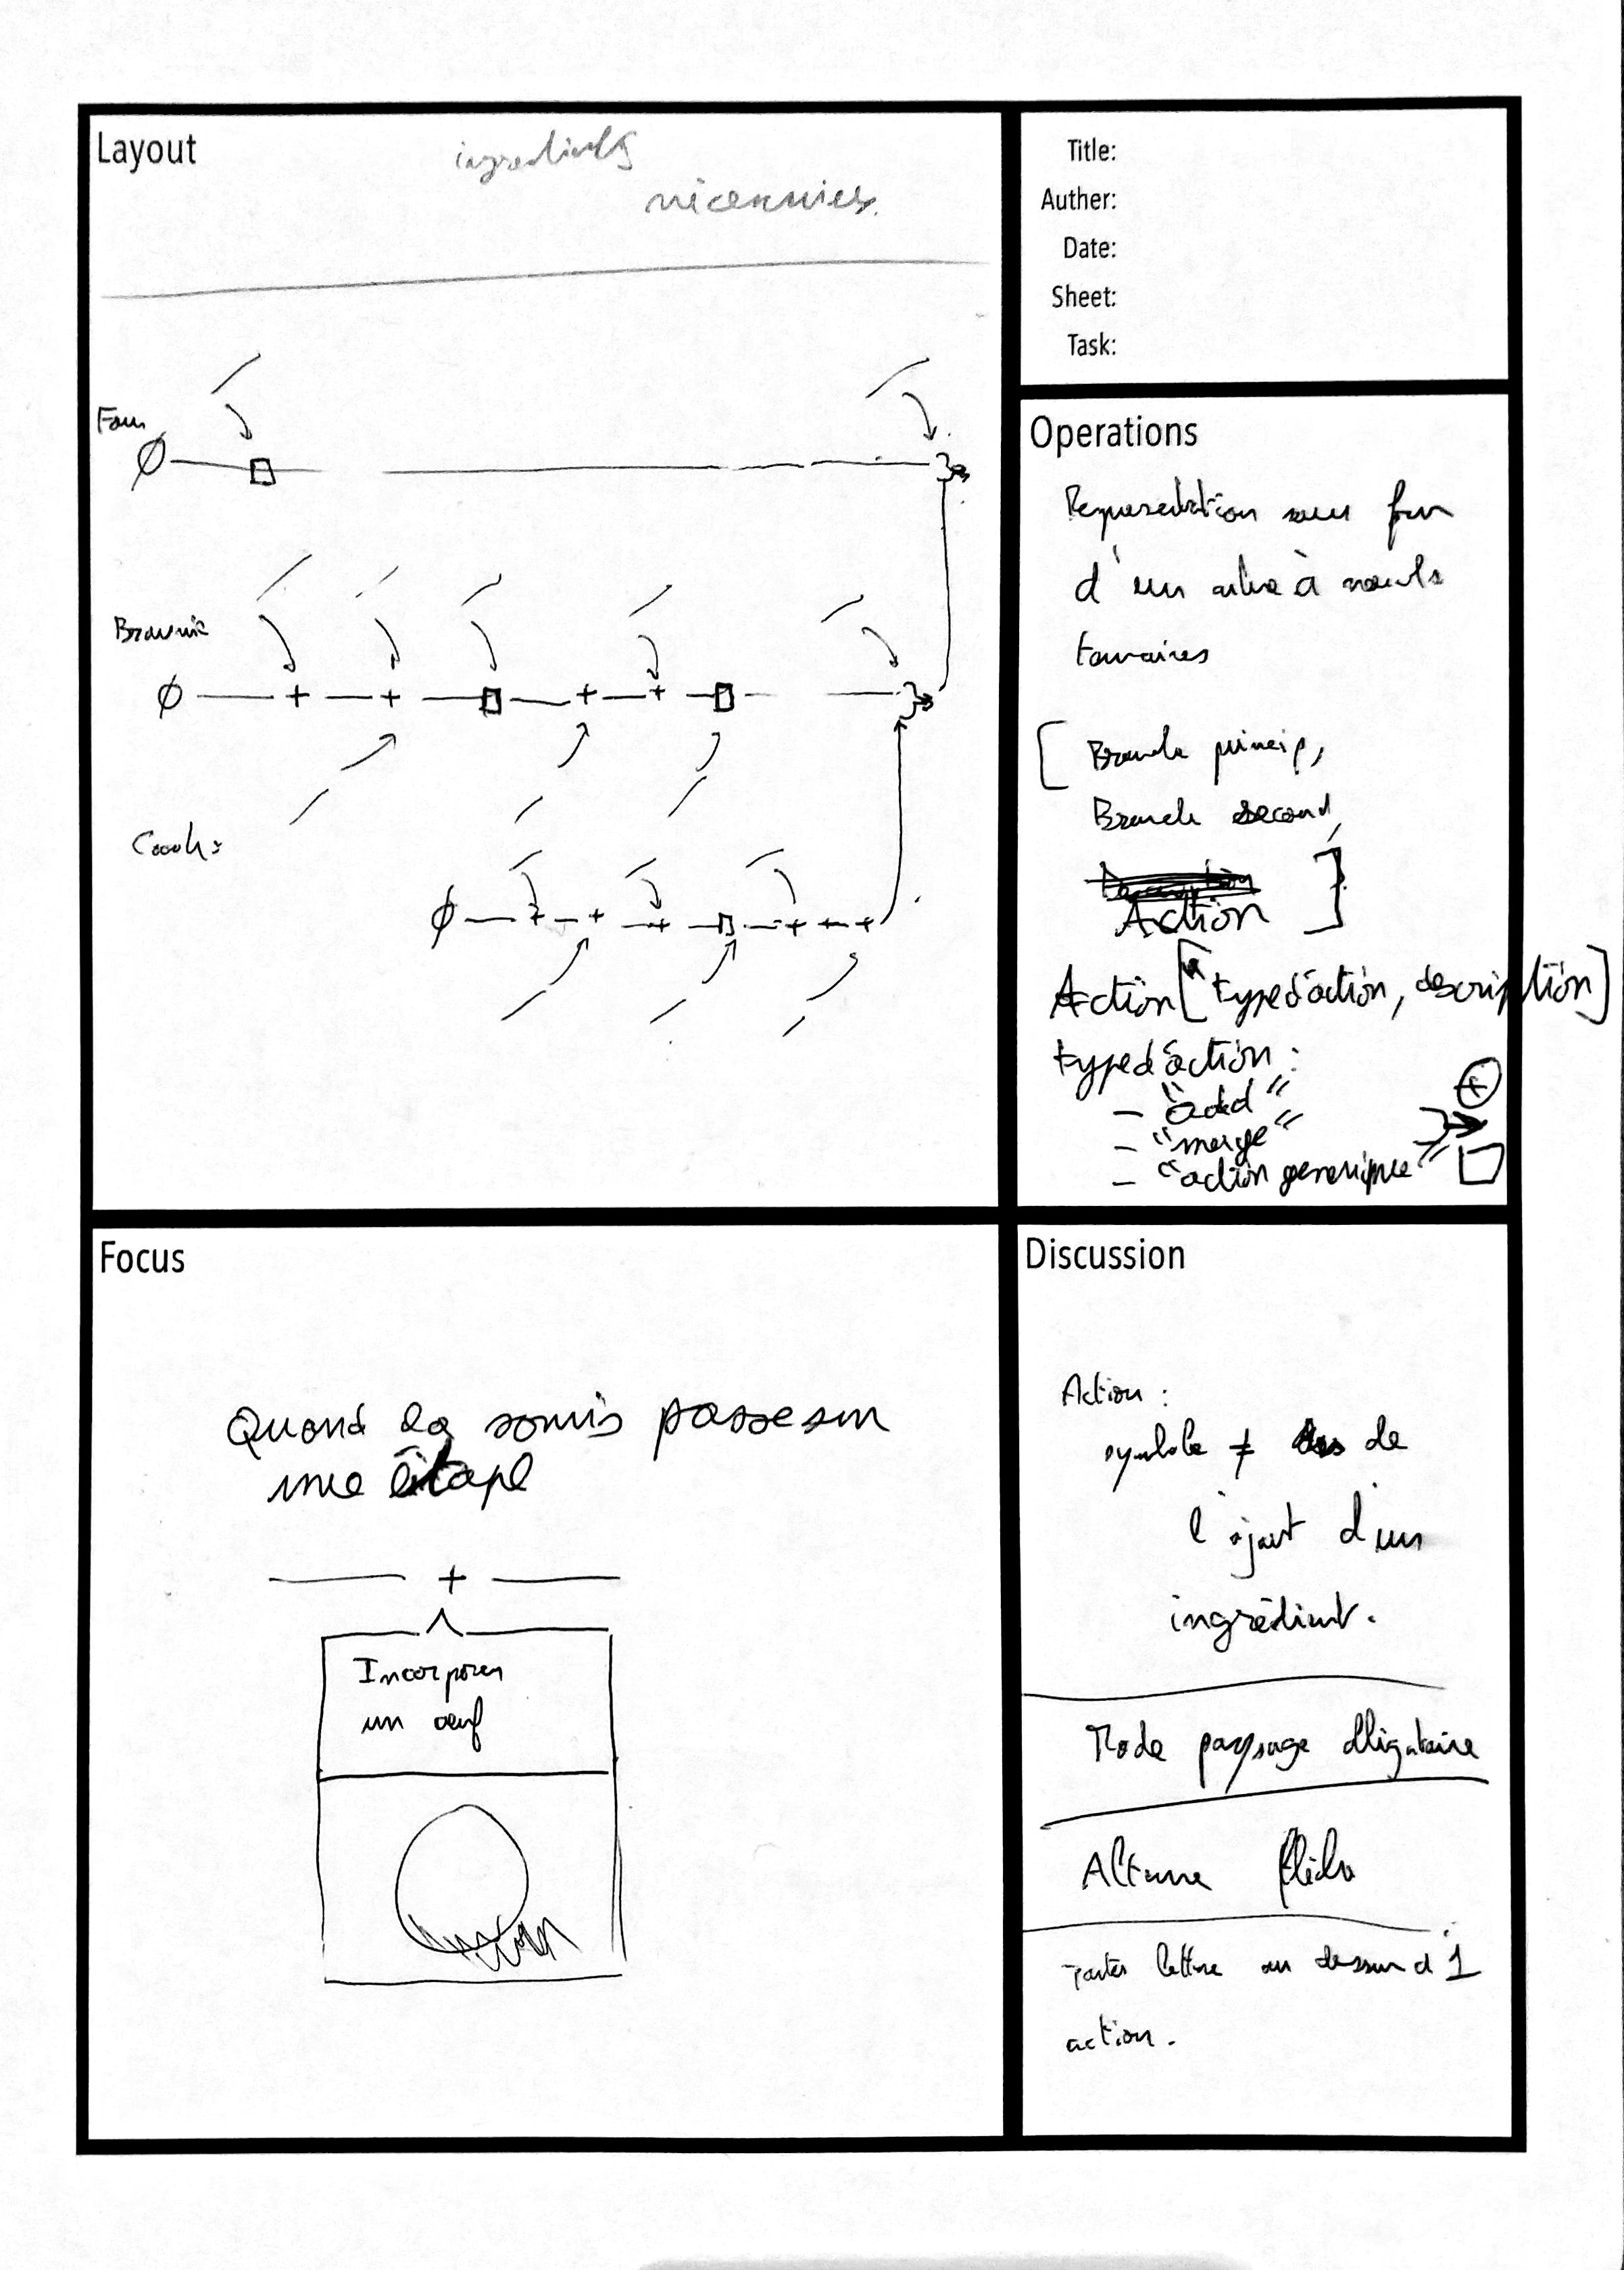 Layout
ingrédients
nécessaires.
Four
Brownie
Cook:
Title:
Auther:
Date:
Sheet:
Task:
Operations
Representation sous form
d'un arbre à nœuds
ternaires
[ Branche princip,
Branche second,
Action ]
Action ["type d'action, description]
type d'action :
- "add" +
- "merge"
- "action generique"
Focus
Quand la souris passe sur
une étape
+
Incorporer
un œuf
Discussion
Action :
symbole ≠ de
l'ajout d'un
ingrédient.
Mode paysage obligatoire
Alterne flèche
lettre au dessus d'1
action.